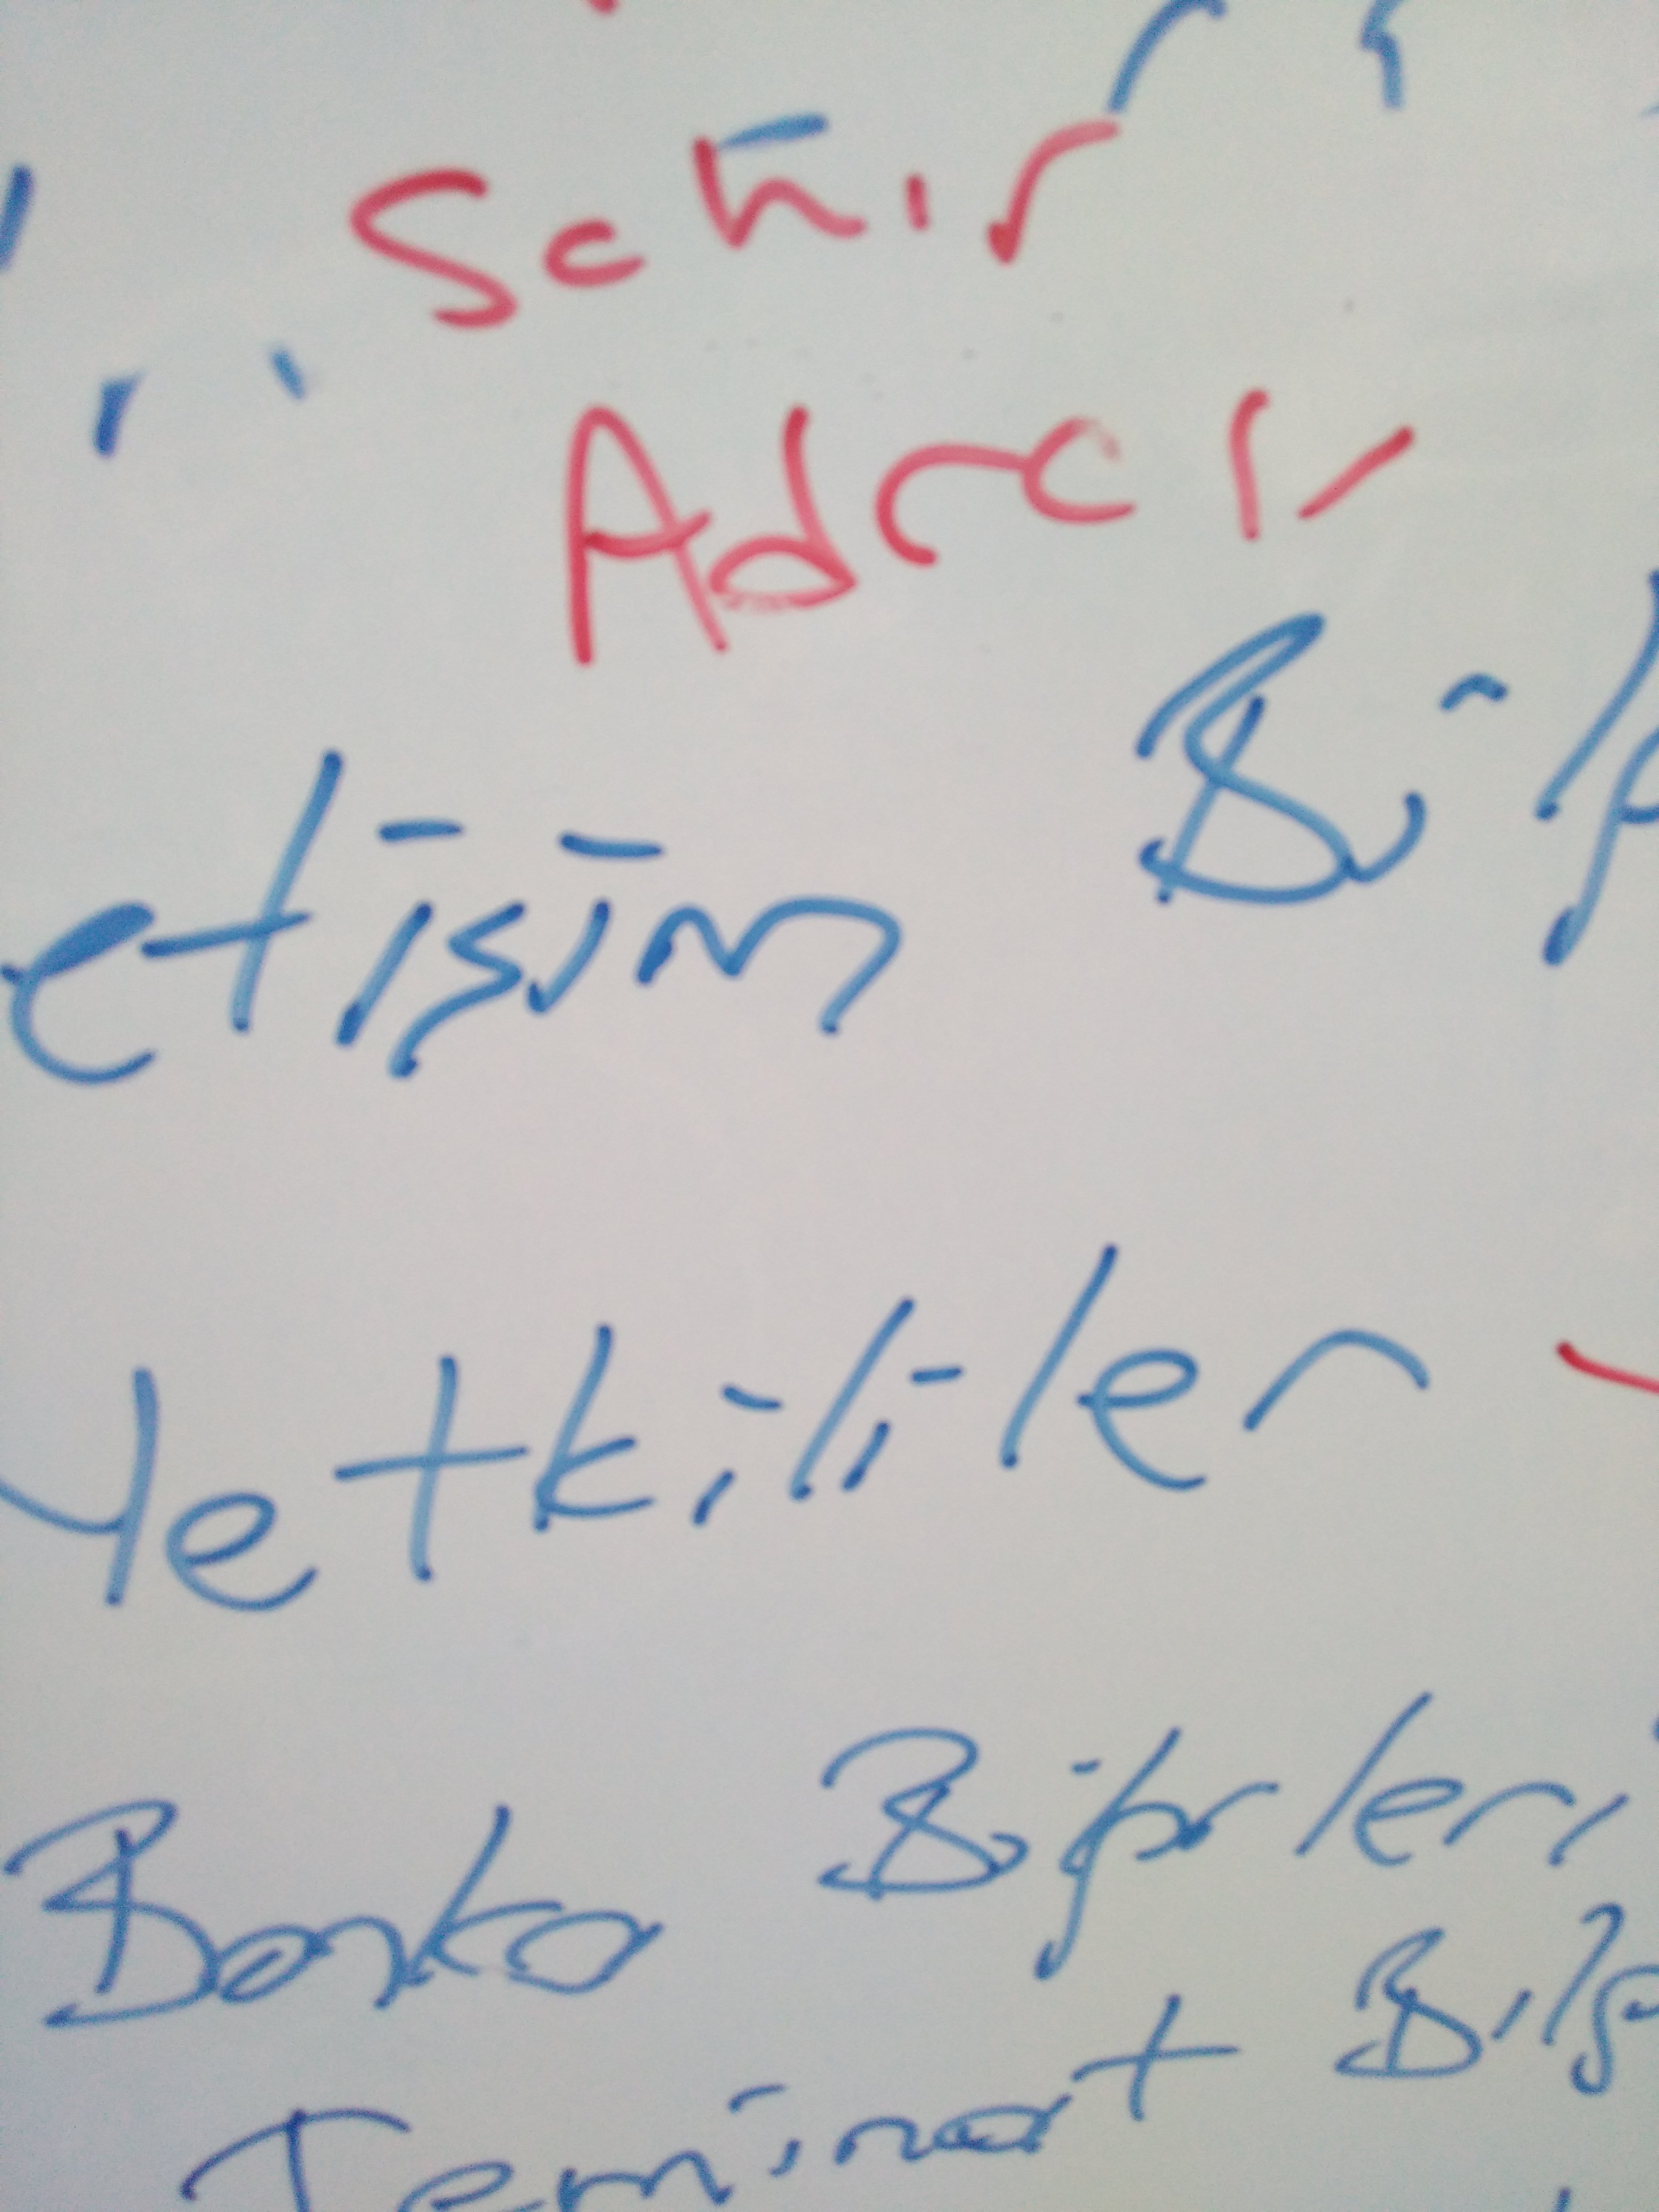 Sehir
Adresi
etişim Bilg
Yetkililer
Banka Bilgileri
Teminat Bilg